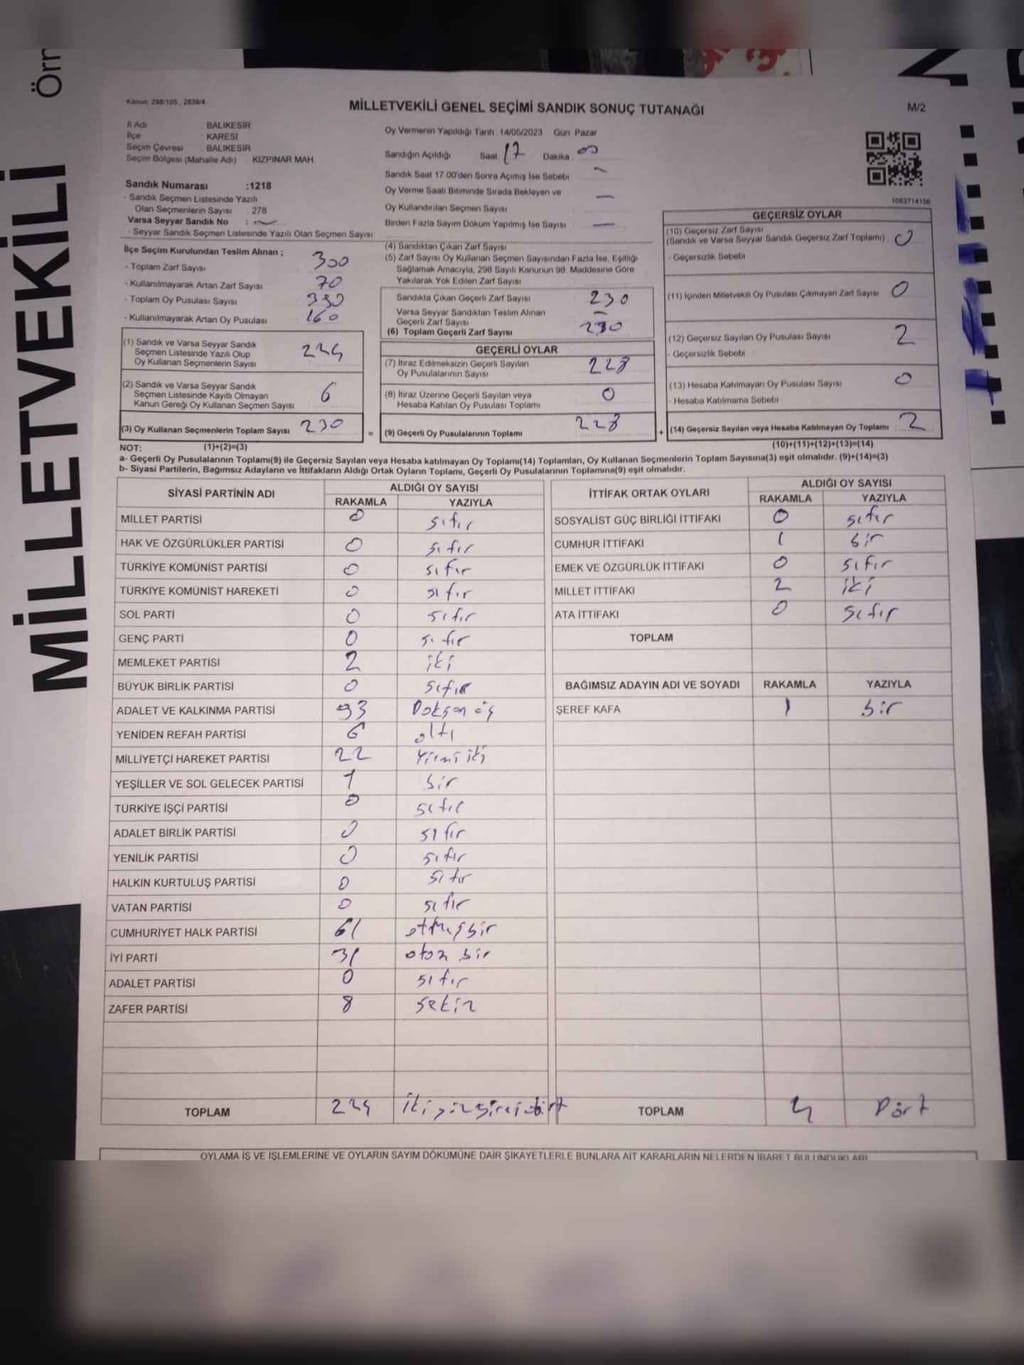 Örn
MİLLETVEKİLİ
Kanun: 298/105 , 2839/4
MİLLETVEKİLİ GENEL SEÇİMİ SANDIK SONUÇ TUTANAĞI
M/2
İl Adı : BALIKESİR
İlçe : KARESİ
Seçim Çevresi : BALIKESİR
Seçim Bölgesi (Mahalle Adı) : KIZPINAR MAH.
Sandık Numarası :1218
- Sandık Seçmen Listesinde Yazılı
Olan Seçmenlerin Sayısı : 278
Varsa Seyyar Sandık No : -
- Seyyar Sandık Seçmen Listesinde Yazılı Olan Seçmen Sayısı :
Oy Vermenin Yapıldığı Tarih 14/05/2023 Gün Pazar
Sandığın Açıldığı Saat 17 Dakika 00
Sandık Saat 17.00'den Sonra Açılmış İse Sebebi -
Oy Verme Saati Bitiminde Sırada Bekleyen ve
Oy Kullandırılan Seçmen Sayısı -
Birden Fazla Sayım Döküm Yapılmış İse Sayısı -
1063714156
İlçe Seçim Kurulundan Teslim Alınan ;
- Toplam Zarf Sayısı 300
- Kullanılmayarak Artan Zarf Sayısı 70
- Toplam Oy Pusulası Sayısı
- Kullanılmayarak Artan Oy Pusulası 160
(1) Sandık ve Varsa Seyyar Sandık
Seçmen Listesinde Yazılı Olup
Oy Kullanan Seçmenlerin Sayısı 224
(2) Sandık ve Varsa Seyyar Sandık
Seçmen Listesinde Kayıtlı Olmayan
Kanun Gereği Oy Kullanan Seçmen Sayısı 6
(3) Oy Kullanan Seçmenlerin Toplam Sayısı 230
(4) Sandıktan Çıkan Zarf Sayısı
(5) Zarf Sayısı Oy Kullanan Seçmen Sayısından Fazla İse, Eşitliği
Sağlamak Amacıyla, 298 Sayılı Kanunun 98. Maddesine Göre
Yakılarak Yok Edilen Zarf Sayısı
Sandıkta Çıkan Geçerli Zarf Sayısı 230
Varsa Seyyar Sandıktan Teslim Alınan
Geçerli Zarf Sayısı -
(6) Toplam Geçerli Zarf Sayısı 230
GEÇERLİ OYLAR
(7) İtiraz Edilmeksizin Geçerli Sayılan
Oy Pusulalarının Sayısı 228
(8) İtiraz Üzerine Geçerli Sayılan veya
Hesaba Katılan Oy Pusulası Toplamı 0
= (9) Geçerli Oy Pusulalarının Toplamı 228
GEÇERSİZ OYLAR
(10) Geçersiz Zarf Sayısı
(Sandık ve Varsa Seyyar Sandık Geçersiz Zarf Toplamı) 0
- Geçersizlik Sebebi
(11) İçinden Milletvekili Oy Pusulası Çıkmayan Zarf Sayısı 0
(12) Geçersiz Sayılan Oy Pusulası Sayısı 2
- Geçersizlik Sebebi
(13) Hesaba Katılmayan Oy Pusulası Sayısı 0
- Hesaba Katılmama Sebebi
+ (14) Geçersiz Sayılan veya Hesaba Katılmayan Oy Toplamı 2
NOT: (1)+(2)=(3)
(10)+(11)+(12)+(13)=(14)
a- Geçerli Oy Pusulalarının Toplamı(9) ile Geçersiz Sayılan veya Hesaba katılmayan Oy Toplamı(14) Toplamları, Oy Kullanan Seçmenlerin Toplam Sayısına(3) eşit olmalıdır. (9)+(14)=(3)
b- Siyasi Partilerin, Bağımsız Adayların ve İttifakların Aldığı Ortak Oyların Toplamı, Geçerli Oy Pusulalarının Toplamına(9) eşit olmalıdır.
SİYASİ PARTİNİN ADI ALDIĞI OY SAYISI
RAKAMLA YAZIYLA
MİLLET PARTİSİ 0 sıfır
HAK VE ÖZGÜRLÜKLER PARTİSİ 0 sıfır
TÜRKİYE KOMÜNİST PARTİSİ 0 sıfır
TÜRKİYE KOMÜNİST HAREKETİ 0 sıfır
SOL PARTİ 0 sıfır
GENÇ PARTİ 0 sıfır
MEMLEKET PARTİSİ 2 iki
BÜYÜK BİRLİK PARTİSİ 0 sıfır
ADALET VE KALKINMA PARTİSİ 93 Doksan üç
YENİDEN REFAH PARTİSİ 6 altı
MİLLİYETÇİ HAREKET PARTİSİ 22 Yirmi iki
YEŞİLLER VE SOL GELECEK PARTİSİ 1 bir
TÜRKİYE İŞÇİ PARTİSİ 0 sıfır
ADALET BİRLİK PARTİSİ 0 sıfır
YENİLİK PARTİSİ 0 sıfır
HALKIN KURTULUŞ PARTİSİ 0 sıfır
VATAN PARTİSİ 0 sıfır
CUMHURİYET HALK PARTİSİ 61 atmışbir
İYİ PARTİ 31 otuz bir
ADALET PARTİSİ 0 sıfır
ZAFER PARTİSİ 8 sekiz
TOPLAM 224 iki yüz yirmi dört
İTTİFAK ORTAK OYLARI ALDIĞI OY SAYISI
RAKAMLA YAZIYLA
SOSYALİST GÜÇ BİRLİĞİ İTTİFAKI 0 sıfır
CUMHUR İTTİFAKI 1 bir
EMEK VE ÖZGÜRLÜK İTTİFAKI 0 sıfır
MİLLET İTTİFAKI 2 iki
ATA İTTİFAKI 0 sıfır
TOPLAM
BAĞIMSIZ ADAYIN ADI VE SOYADI RAKAMLA YAZIYLA
ŞEREF KAFA 1 bir
TOPLAM 4 Dört
OYLAMA İŞ VE İŞLEMLERİNE VE OYLARIN SAYIM DÖKÜMÜNE DAİR ŞİKAYETLERLE BUNLARA AİT KARARLARIN NELERDEN İBARET BULUNDUKLARI